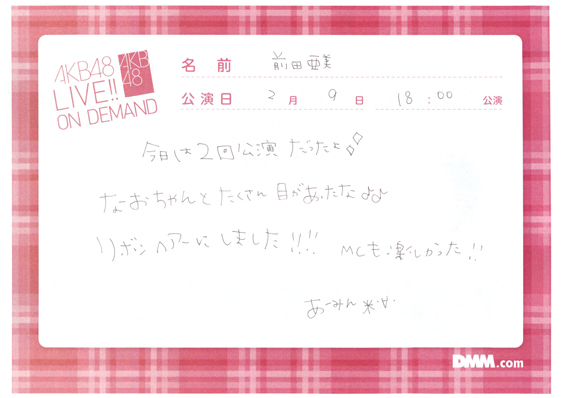 AKB48
LIVE!!
ON DEMAND
AKB
48
名前 前田亜美
公演日 2月9日 18:00 公演
今日は2回公演だったよ
なーおちゃんとたくさん目があったな♪♪
リボンヘアーにしました!!!! MCも楽しかった!!
あーみん
DMM.com